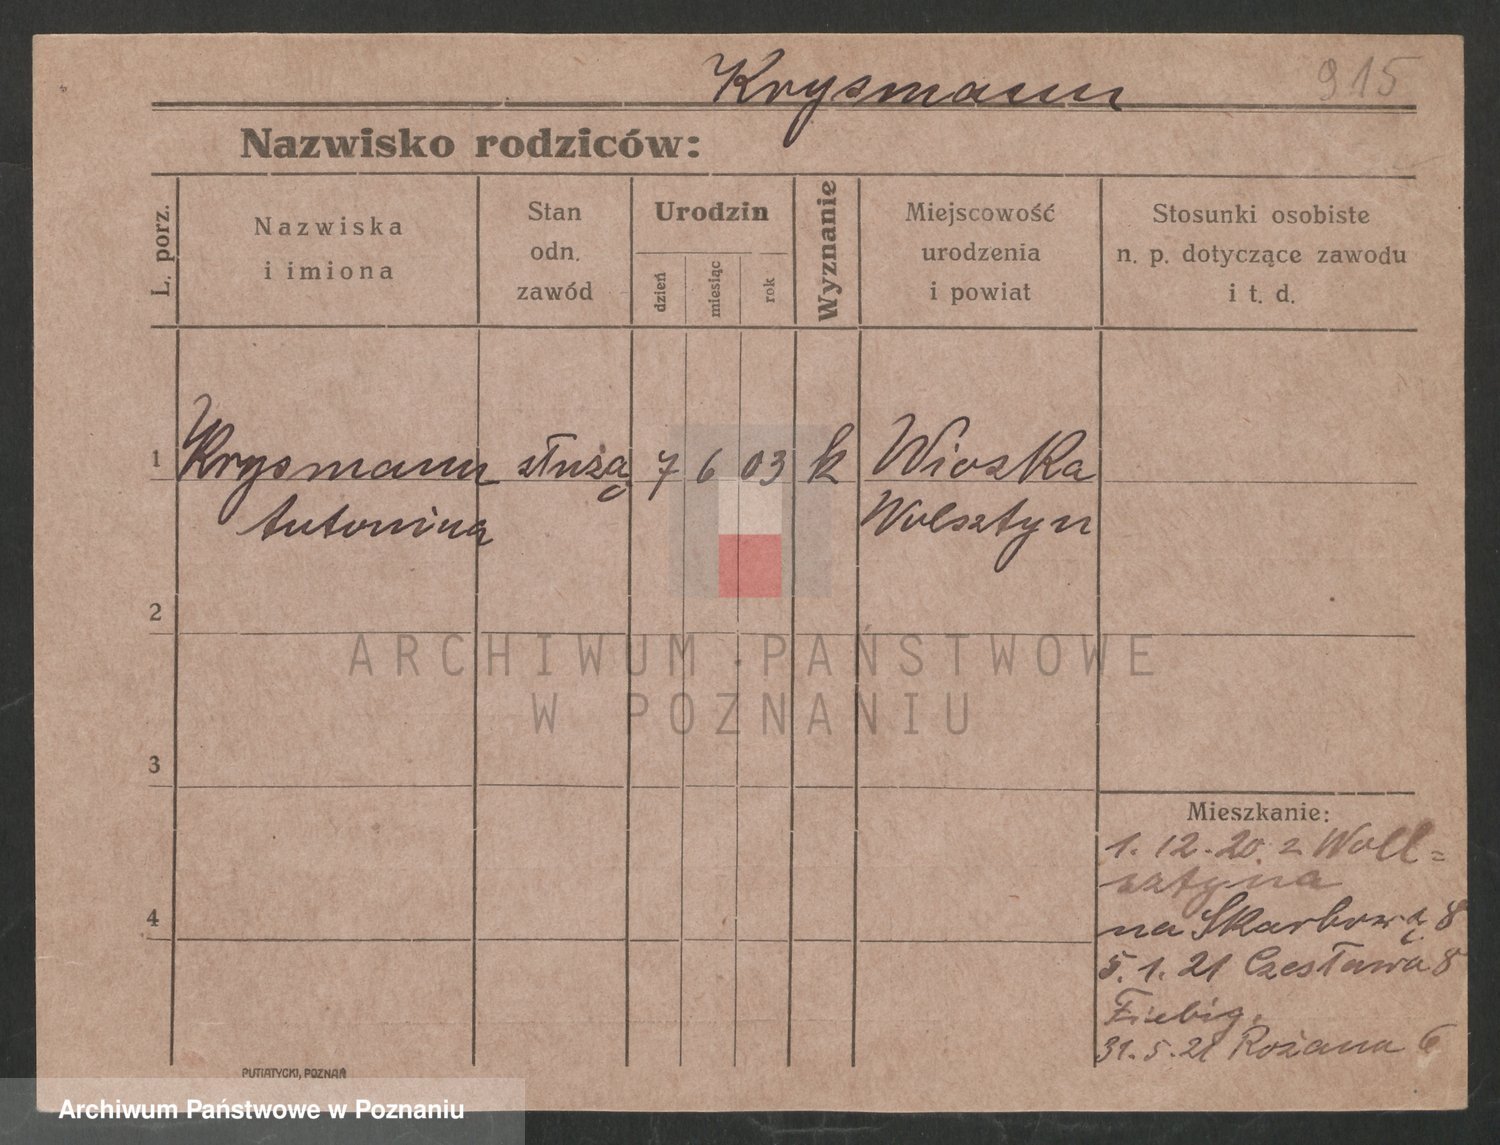 Krysmann
915
Nazwisko rodziców:
L. porz.
Nazwiska
i imiona
Stan
odn.
zawód
Urodzin
dzień
miesiąc
rok
Wyznanie
Miejscowość
urodzenia
i powiat
Stosunki osobiste
n. p. dotyczące zawodu
i t. d.
1 Krysmann służą 7 6 03 k Wioska
Antonina Wolsztyn
2
ARCHIWUM PAŃSTWOWE
W POZNANIU
3
Mieszkanie:
1. 12. 20. z Woll=
sztyna
4
na Skarbową 8
5. 1. 21 Czesława 8
Fiebig.
31. 5. 21 Różana 6
PUTIATYCKI, POZNAŃ
Archiwum Państwowe w Poznaniu